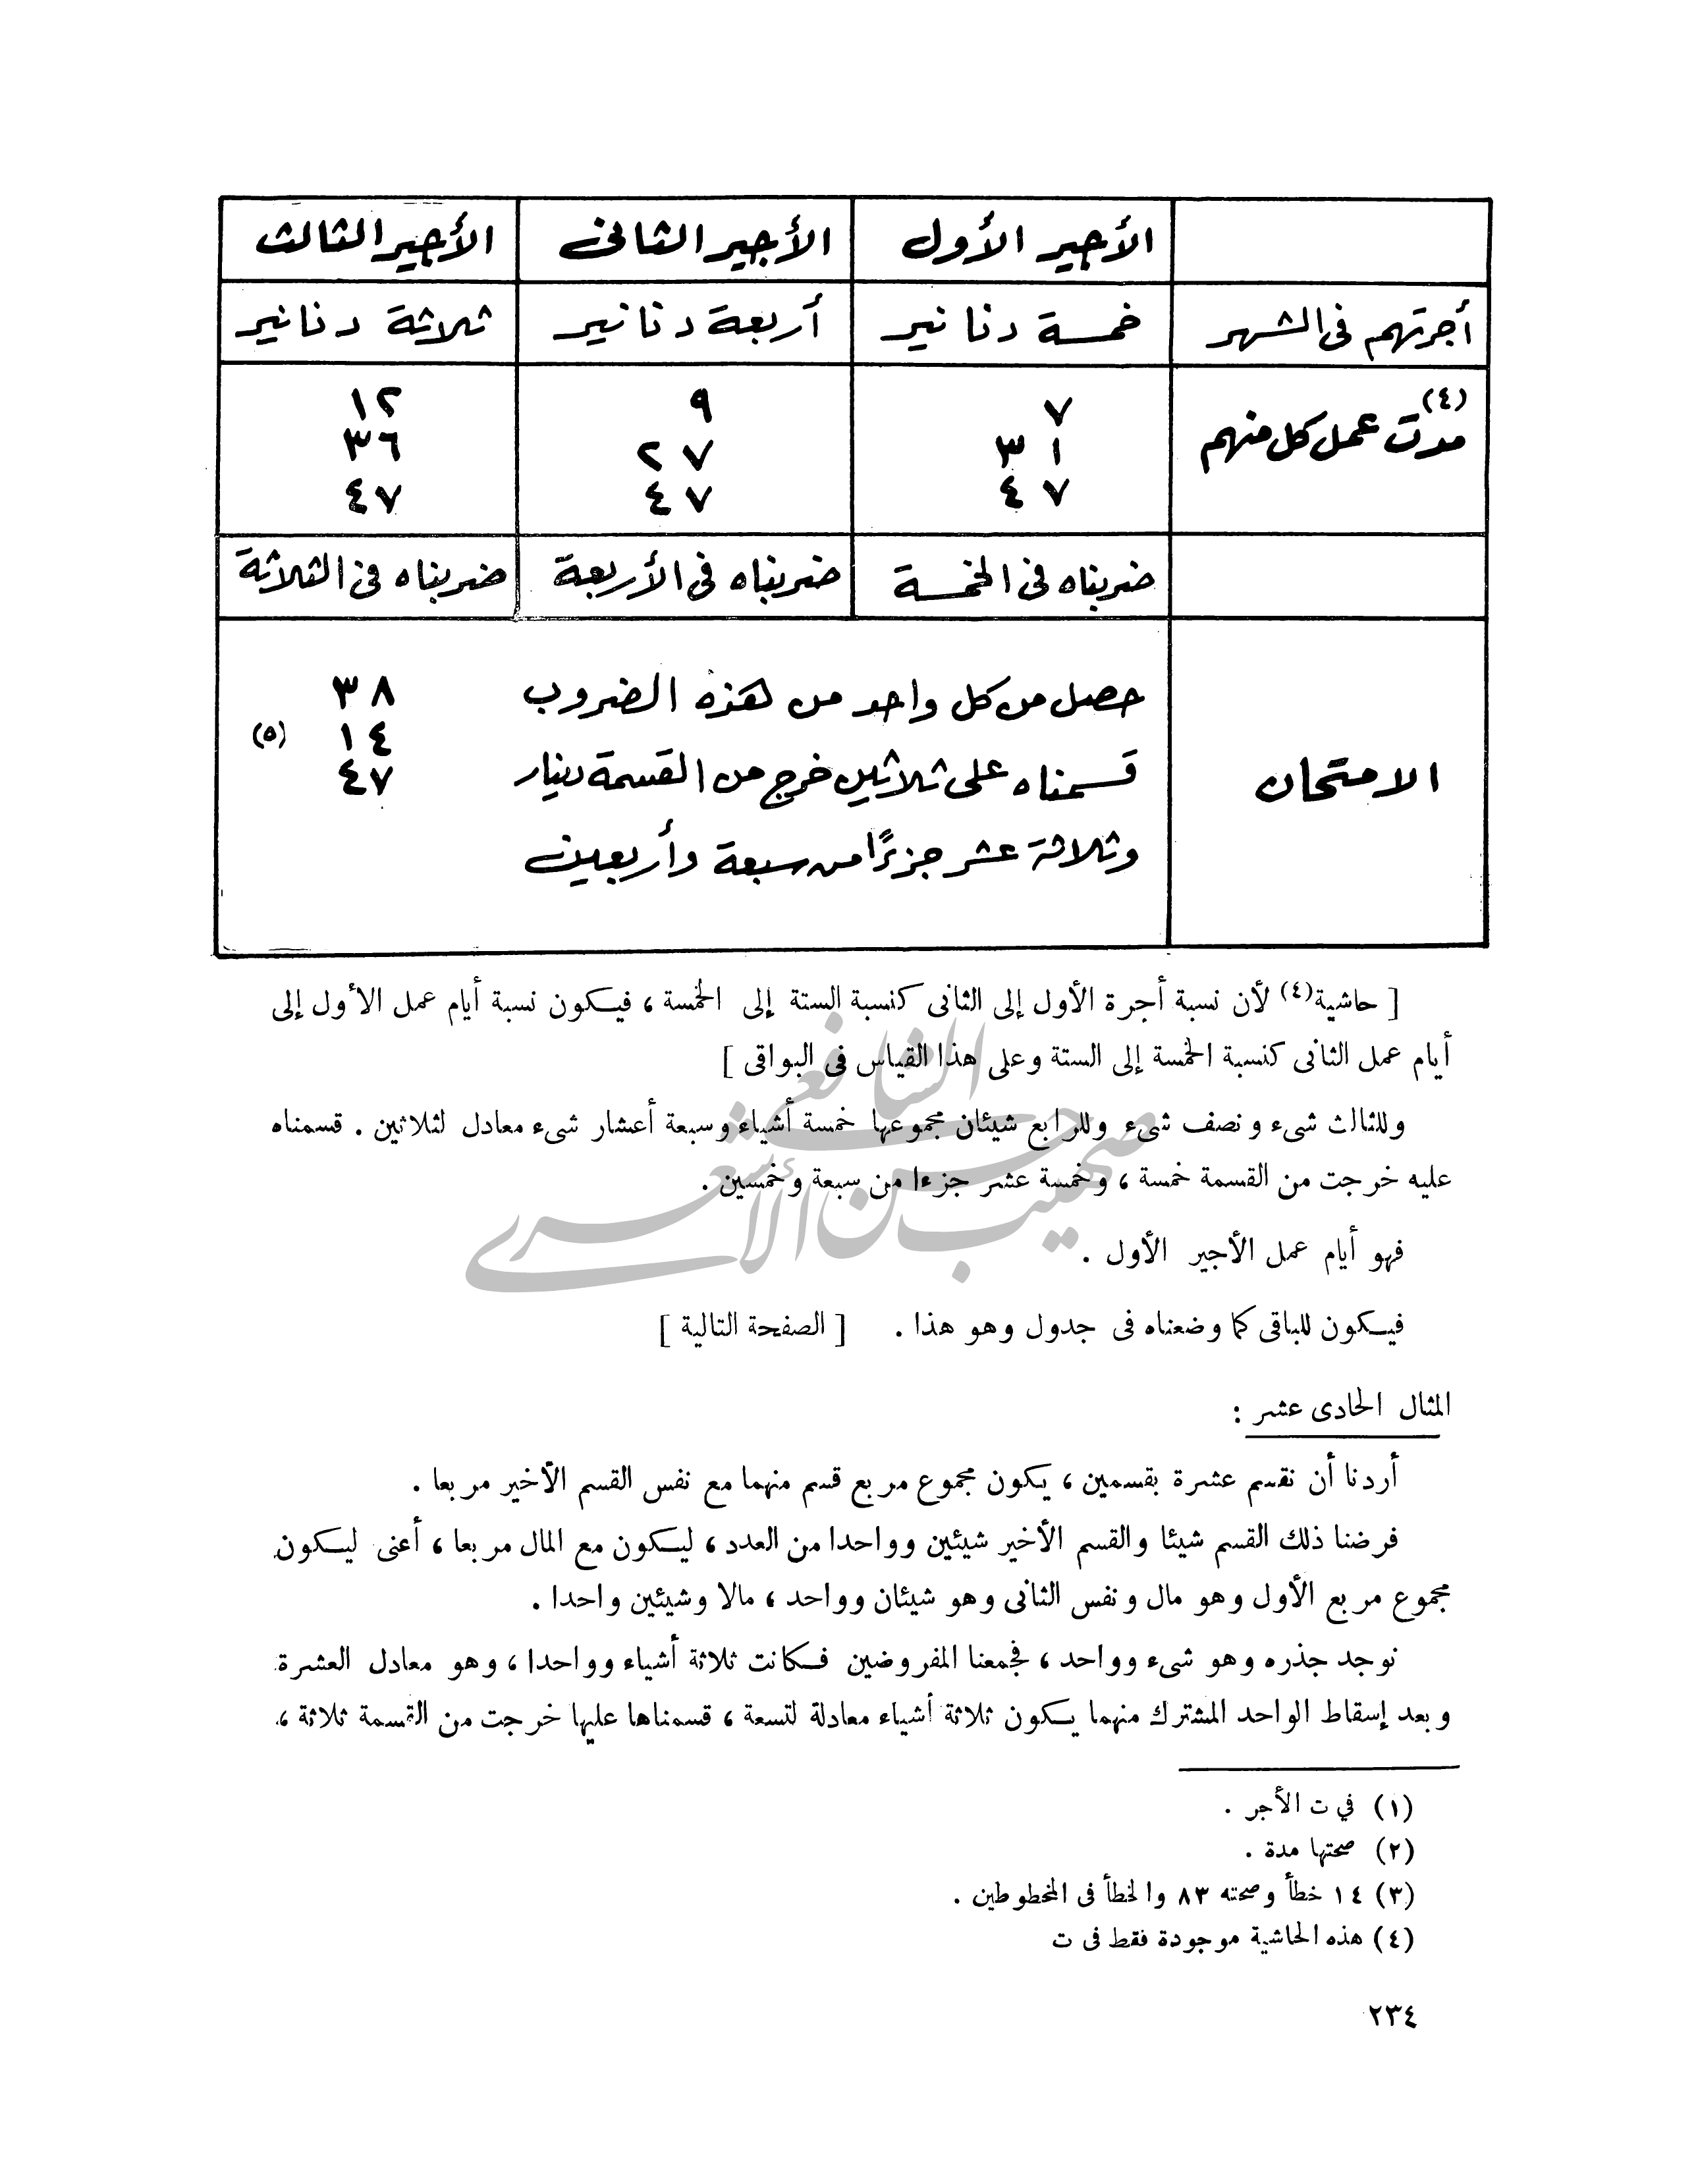 الأجير الأول الأجير الثانى الأجير الثالث
أجرتهم فى الشهر خمسة دنانير أربعة دنانير ثلاثة دنانير
(٤)
مدت عمل كل منهم
٧ ٩ ١٢
٣١ ٢٧ ٣٦
٤٧ ٤٧ ٤٧
ضربناه فى الخمسة ضربناه فى الأربعة ضربناه فى الثلاثة
الامتحان
حصل من كل واحد من هذه الضروب ٣٨
١٤ (٥)
قسمناه على ثلاثين خرج من القسمة دينار ٤٧
وثلاثة عشر جزءًا من سبعة وأربعين
[ حاشية(٤) لأن نسبة أجرة الأول إلى الثانى كنسبة الستة إلى الخمسة ، فيكون نسبة أيام عمل الأول إلى
أيام عمل الثانى كنسبة الخمسة إلى الستة وعلى هذا القياس فى البواقى ]
وللثالث شىء ونصف شىء وللرابع شيئان مجموعها خمسة أشياء وسبعة أعشار شىء معادل لثلاثين . قسمناه
عليه خرجت من القسمة خمسة ، وخمسة عشر جزءا من سبعة وخمسين .
فهو أيام عمل الأجير الأول .
فيكون للباقى كما وضعناه فى جدول وهو هذا . [ الصفحة التالية ]
المثال الحادى عشر :
أردنا أن نقسم عشرة بقسمين ، يكون مجموع مربع قسم منهما مع نفس القسم الآخير مربعا .
فرضنا ذلك القسم شيئا والقسم الأخير شيئين وواحدا من العدد ، ليكون مع المال مربعا ، أعنى ليكون
مجموع مربع الأول وهو مال ونفس الثانى وهو شيئان وواحد ، مالا وشيئين واحدا .
نوجد جذره وهو شىء وواحد ، فجمعنا المفروضين فكانت ثلاثة أشياء وواحدا ، وهو معادل العشرة
وبعد إسقاط الواحد المشترك منهما يكون ثلاثة أشياء معادلة لتسعة ، قسمناها عليها خرجت من القسمة ثلاثة ،
(١) في ت الأجر .
(٢) صحتها مدة .
(٣) ١٤ خطأ وصحته ٨٣ والخطأ فى المخطوطين .
(٤) هذه الحاشية موجودة فقط فى ت
٢٣٤
صهيب حسن الشافعي الأشعري